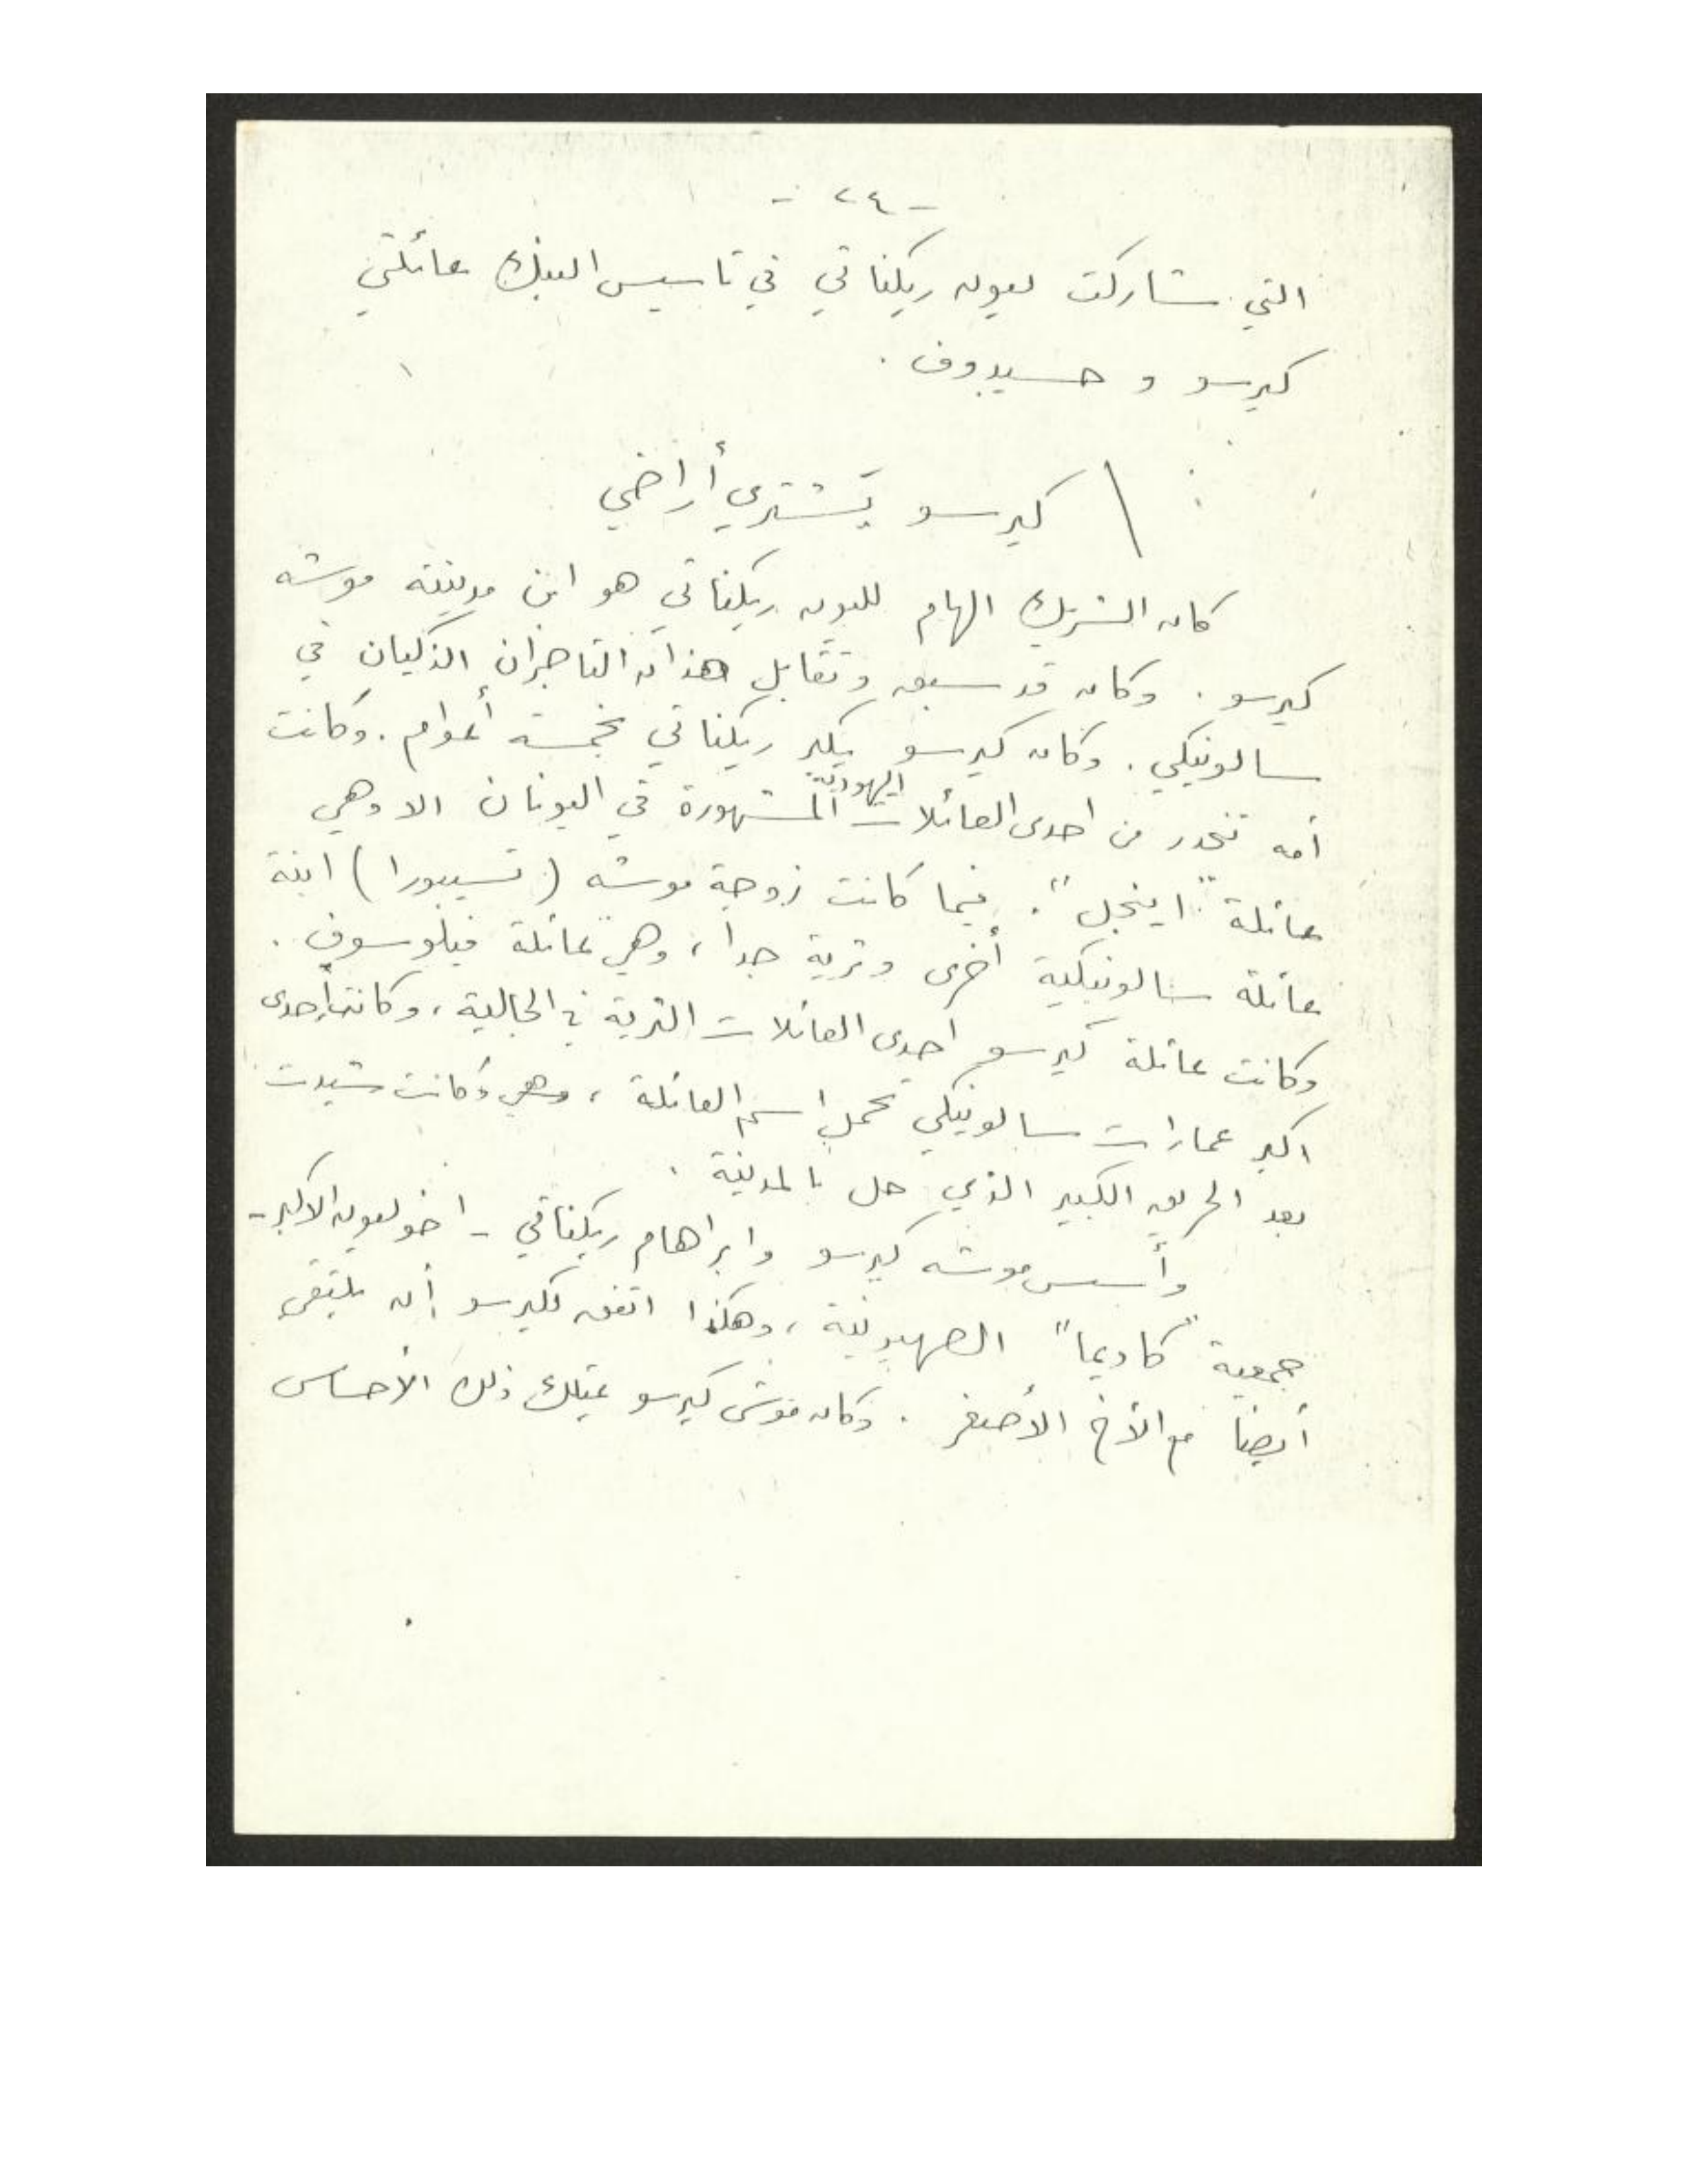 - ٢٤ -
التي شاركت ليون ريكناتي في تاسيس البنك عائلتي
كيرسو و حسيدوف .
كيرسو يشتري أراضي
كان الشريك الهام لليون ريكناتي هو ابن مدينته موشه
كيرسو . وكان قد سبق وتقابل هذان التاجران الذكيان في
سالونيكي . وكان كيرسو يكبر ريكناتي بخمسة أعوام . وكانت
أمه تنحدر من احدى العائلات اليهودية المشهورة في اليونان الا وهي
عائلة " اينجل " . فيما كانت زوجة موشه ( تسيبورا ) ابنة
عائلة سالونيكية أخرى وثرية جداً ، وهي عائلة فيلوسوف .
وكانت عائلة كيرسو احدى العائلات الثرية في الجالية ، وكانت إحدى
اكبر عمارات سالونيكي تحمل اسم العائلة ، وكانت شيدت
بعد الحريق الكبير الذي حل بالمدينة .
وأسس موشه كيرسو وابراهام ريكناتي - اخو ليون الاكبر -
جمعية " كاديما " الصهيونية ، وهكذا اتفق لكيرسو أن يلتقي
أيضاً مع الأخ الأصغر . وكان موشى كيرسو يمتلك ذلك الأحساس